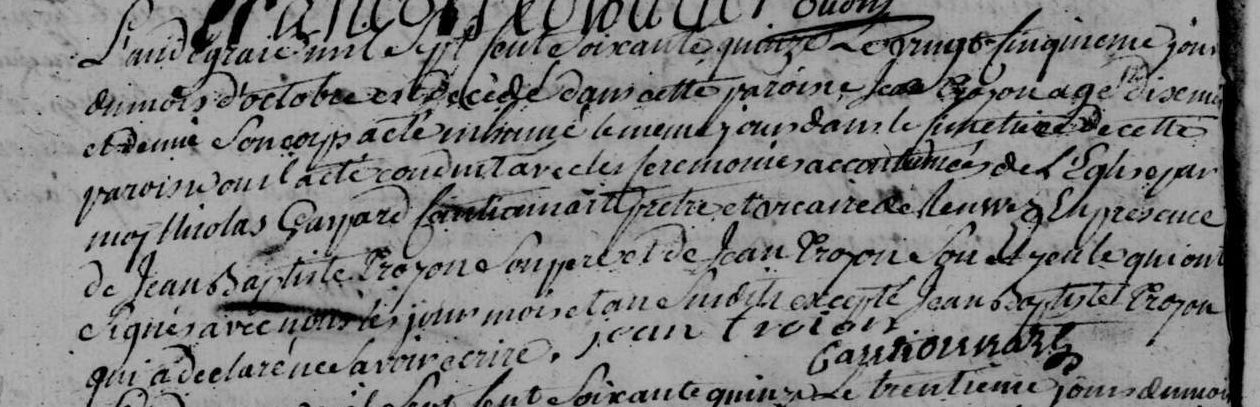 L'an de grace mil sept sent soixante quinze Le vingt sinquieme jour
du mois d'octobre est decede dans cette paroisse Jean Troyon agé
et demie son corps a eté inhumé le meme jour dans le simetiere de cette
paroisse ou il a eté conduit avec les seremonies accoutumées de L'Eglise par
moy Nicolas Gaspard Cautionnart pretre et vicaire de En presence
de Jean Baptiste Troyon son pere et de Jean Troyon son qui ont
signés avec nous les jour mois et an susdits excepté Jean Baptiste Troyon
qui a declaré ne savoir ecrire. jean troion
Cautionnart
sept sent soixante quinze Le trentieme jour du moi